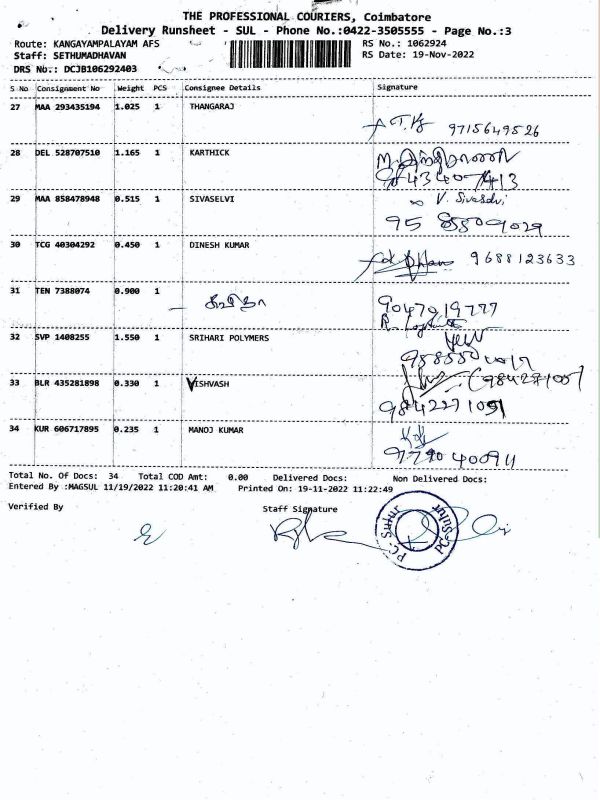 THE PROFESSIONAL COURIERS, Coimbatore
Delivery Runsheet - SUL - Phone No.:0422-3505555 - Page No.:3
Route: KANGAYAMPALAYAM AFS RS No.: 1062924
Staff: SETHUMADHAVAN RS Date: 19-Nov-2022
DRS No.: DCJB106292403
S No Consignment No Weight PCS Consignee Details Signature
27 MAA 293435194 1.025 1 THANGARAJ
9715649526
28 DEL 528707510 1.165 1 KARTHICK
9843407413
29 MAA 858478948 0.515 1 SIVASELVI V. Sivaselvi
95 85509029
30 TCG 40304292 0.450 1 DINESH KUMAR
9688123633
31 TEN 7388074 0.900 1
கவிதா 9047019777
32 SVP 1408255 1.550 1 SRIHARI POLYMERS
33 BLR 435281898 0.330 1 VISHVASH
9842271051
34 KUR 606717895 0.235 1 MANOJ KUMAR
Total No. Of Docs: 34 Total COD Amt: 0.00 Delivered Docs: Non Delivered Docs:
Entered By :MAGSUL 11/19/2022 11:20:41 AM Printed On: 19-11-2022 11:22:49
Verified By Staff Signature
PC-Sulur PC-Sulur